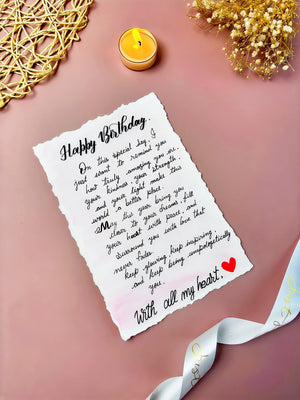 Happy Birthday.
On this special day, I
just want to remind you
how truly amazing you are.
your kindness, your strength,
and your light make this
world a better place.
May this year bring you
closer to your dreams, fill
your heart with peace, and
surround you with love that
never fades.
keep glowing, keep inspiring,
and keep being unapologetically
you.
With all my heart.